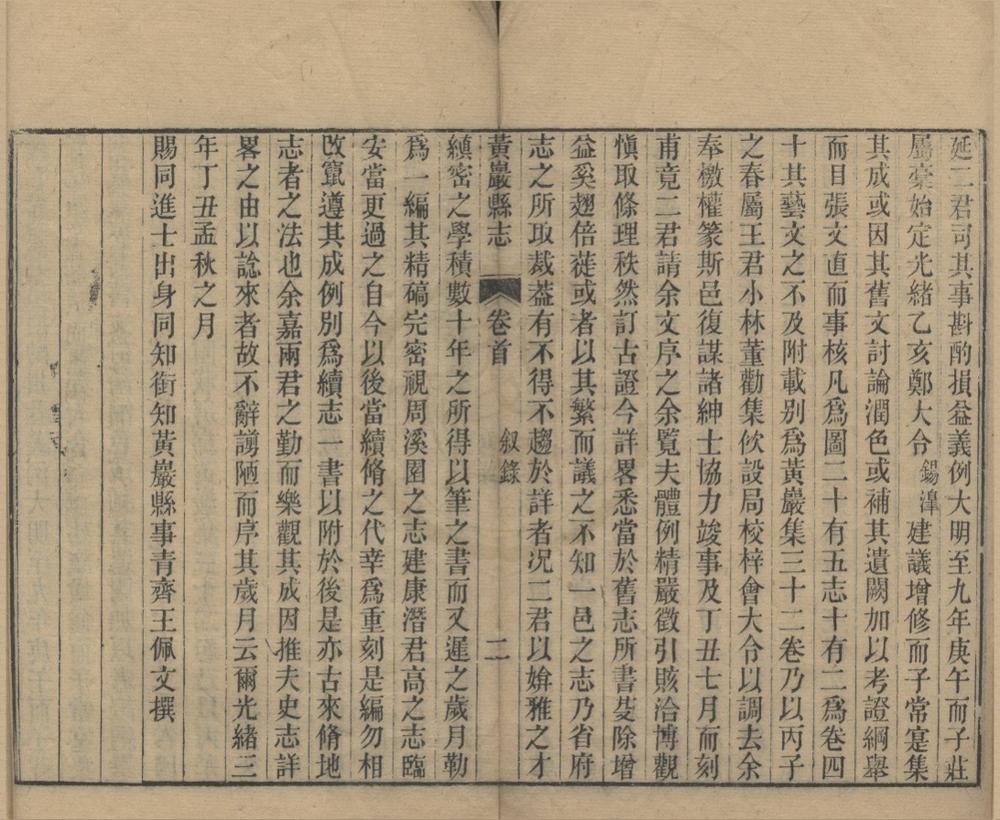 延二君司其事斟酌損益義例大明至九年庚午而子莊
屬稾始定光緒乙亥鄭大令錫滜建議增修而子常寔集
其成或因其舊文討論潤色或補其遺闕加以考證綱舉
而目張文直而事核凡爲圖二十有五志十有二爲卷四
十其藝文之不及附載別爲黃巖集三十二卷乃以丙子
之春屬王君小林董勸集佽設局校梓會大令以調去余
奉檄權篆斯邑復謀諸紳士協力竣事及丁丑七月而刻
甫竟二君請余文序之余覽夫體例精嚴徵引賅洽博觀
愼取條理秩然訂古證今詳畧悉當於舊志所書芟除增
益奚翅倍蓰或者以其繁而議之不知一邑之志乃省府
志之所取裁葢有不得不趨於詳者况二君以媕雅之才
黃巖縣志 卷首 叙錄 二
縝密之學積數十年之所得以筆之書而又遲之歲月勒
爲一編其精碻完密視周溪園之志建康潛君高之志臨
安當更過之自今以後當續脩之代幸爲重刻是編勿相
改竄遵其成例別爲續志一書以附於後是亦古來脩地
志者之法也余嘉兩君之勤而樂觀其成因推夫史志詳
畧之由以諗來者故不辭謭陋而序其歲月云爾光緒三
年丁丑孟秋之月
賜同進士出身同知銜知黃巖縣事青齊王佩文撰